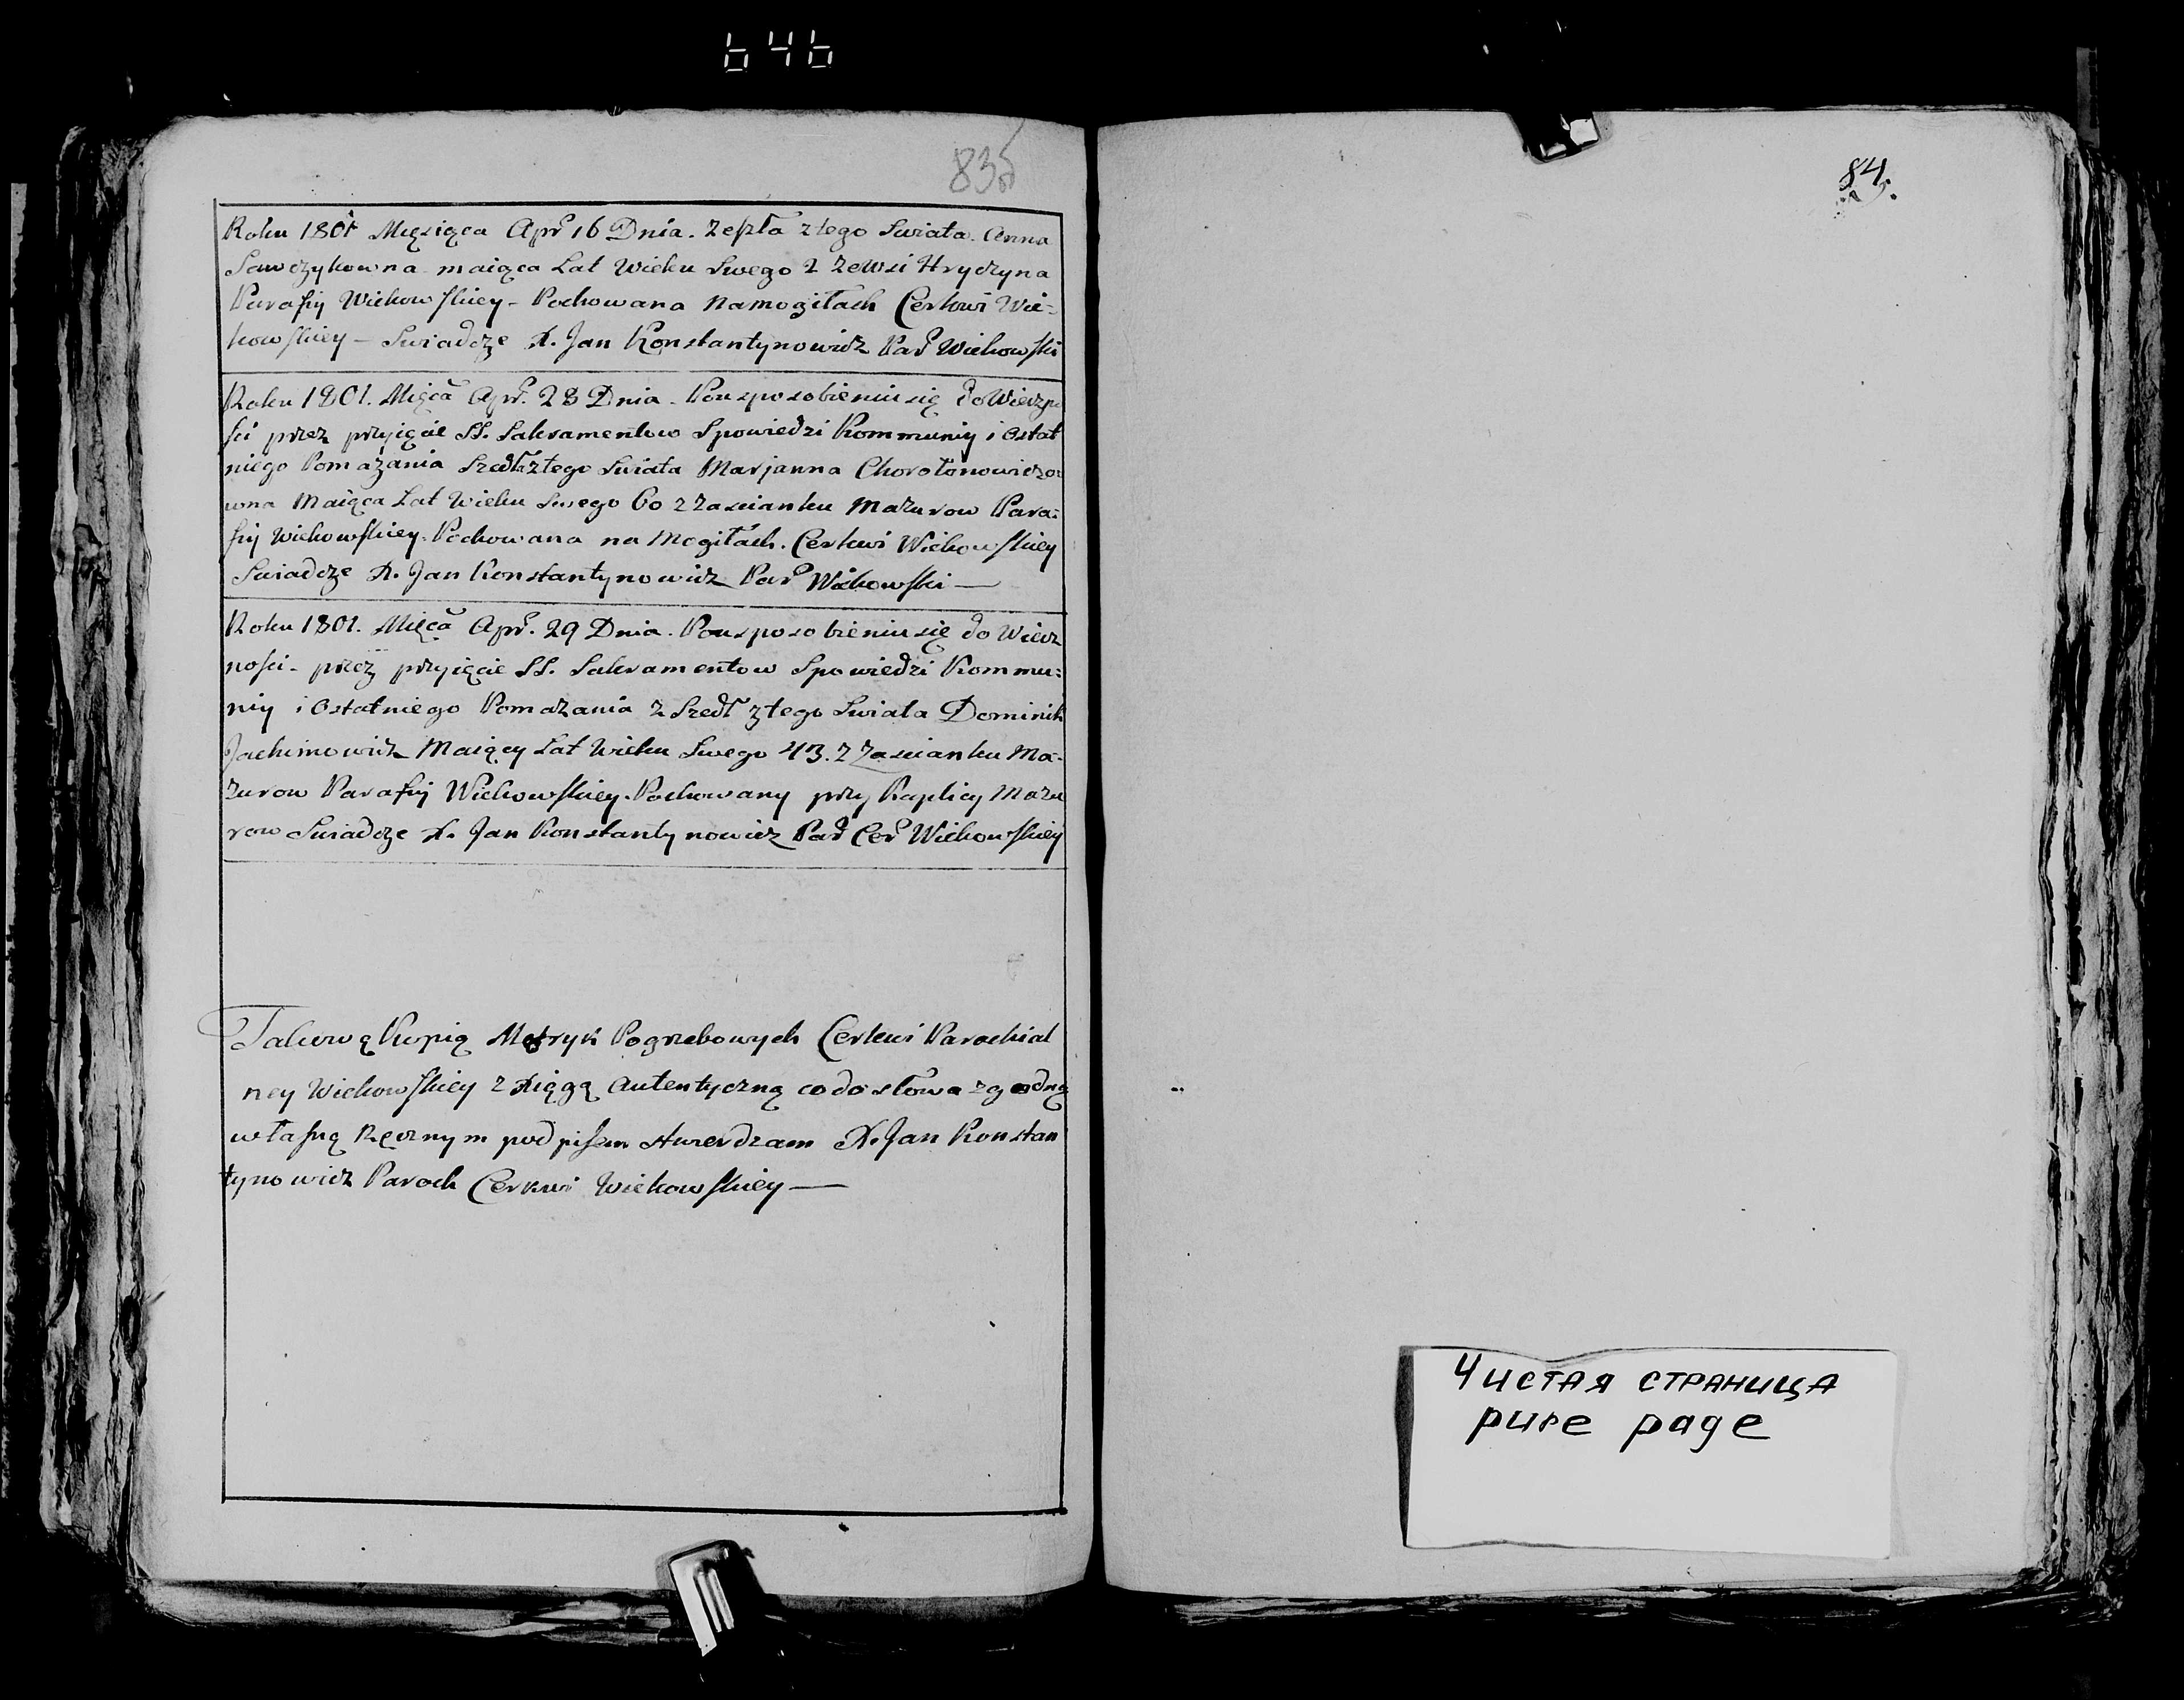 646
83об
Roku 1801 Męsiąca Apr 16 Dnia. Zeszła z tego Swiata. Anna
Sawczykowna maiąca Lat Wieku Swego 2 ze Wsi Hryczyna
Parafij Wiekowskiey - Pochowana na mogiłach Cerkwi Wie-
kowskiey - Swiadczę X. Jan Konstantynowicz Par Wiekowski
Roku 1801. Mięca Apr. 28 Dnia. Po usposobieniu się do Wieczno
sci przez przyięcie SS. Sakramentow Spowiedzi Kommunij i Ostat
niego Pomazania Szedła z tego Swiata Marjanna
wna Maiąca Lat Wieku Swego 60 z Zascianku Mazurow Para-
fij Wiekowskiey. Pochowana na Mogiłach. Cerkwi Wiekowskiey
Swiadczę X. Jan Konstantynowicz Par Wiekowski —
Roku 1801. Mięca Apr. 29 Dnia. Po usposobieniu się do Wiecz
nosci - przez przyięcie SS. Sakramentow Spowiedzi Kommu-
nij i Ostatniego Pomazania z Szedł z tego Swiata Dominik
Jachimowicz Maiący Lat Wieku Swego 43. z Zascianku Ma-
zurow Parafij Wiekowskiey. Pochowany przy Kaplicy Mazu
row Swiadczę X. Jan Konstantynowicz Par Cer Wiekowskiey
Takową Kopią Metryk Pogrzebowych Cerkwi Parochial
ney Wiekowskiey z Xięgą Autentyczną co do słowa zgodną
własną Ręcznym podpisem stwierdzam X. Jan Konstan
tynowicz Paroch Cerkwi Wiekowskiey —
84.
Чистая страница
pure page